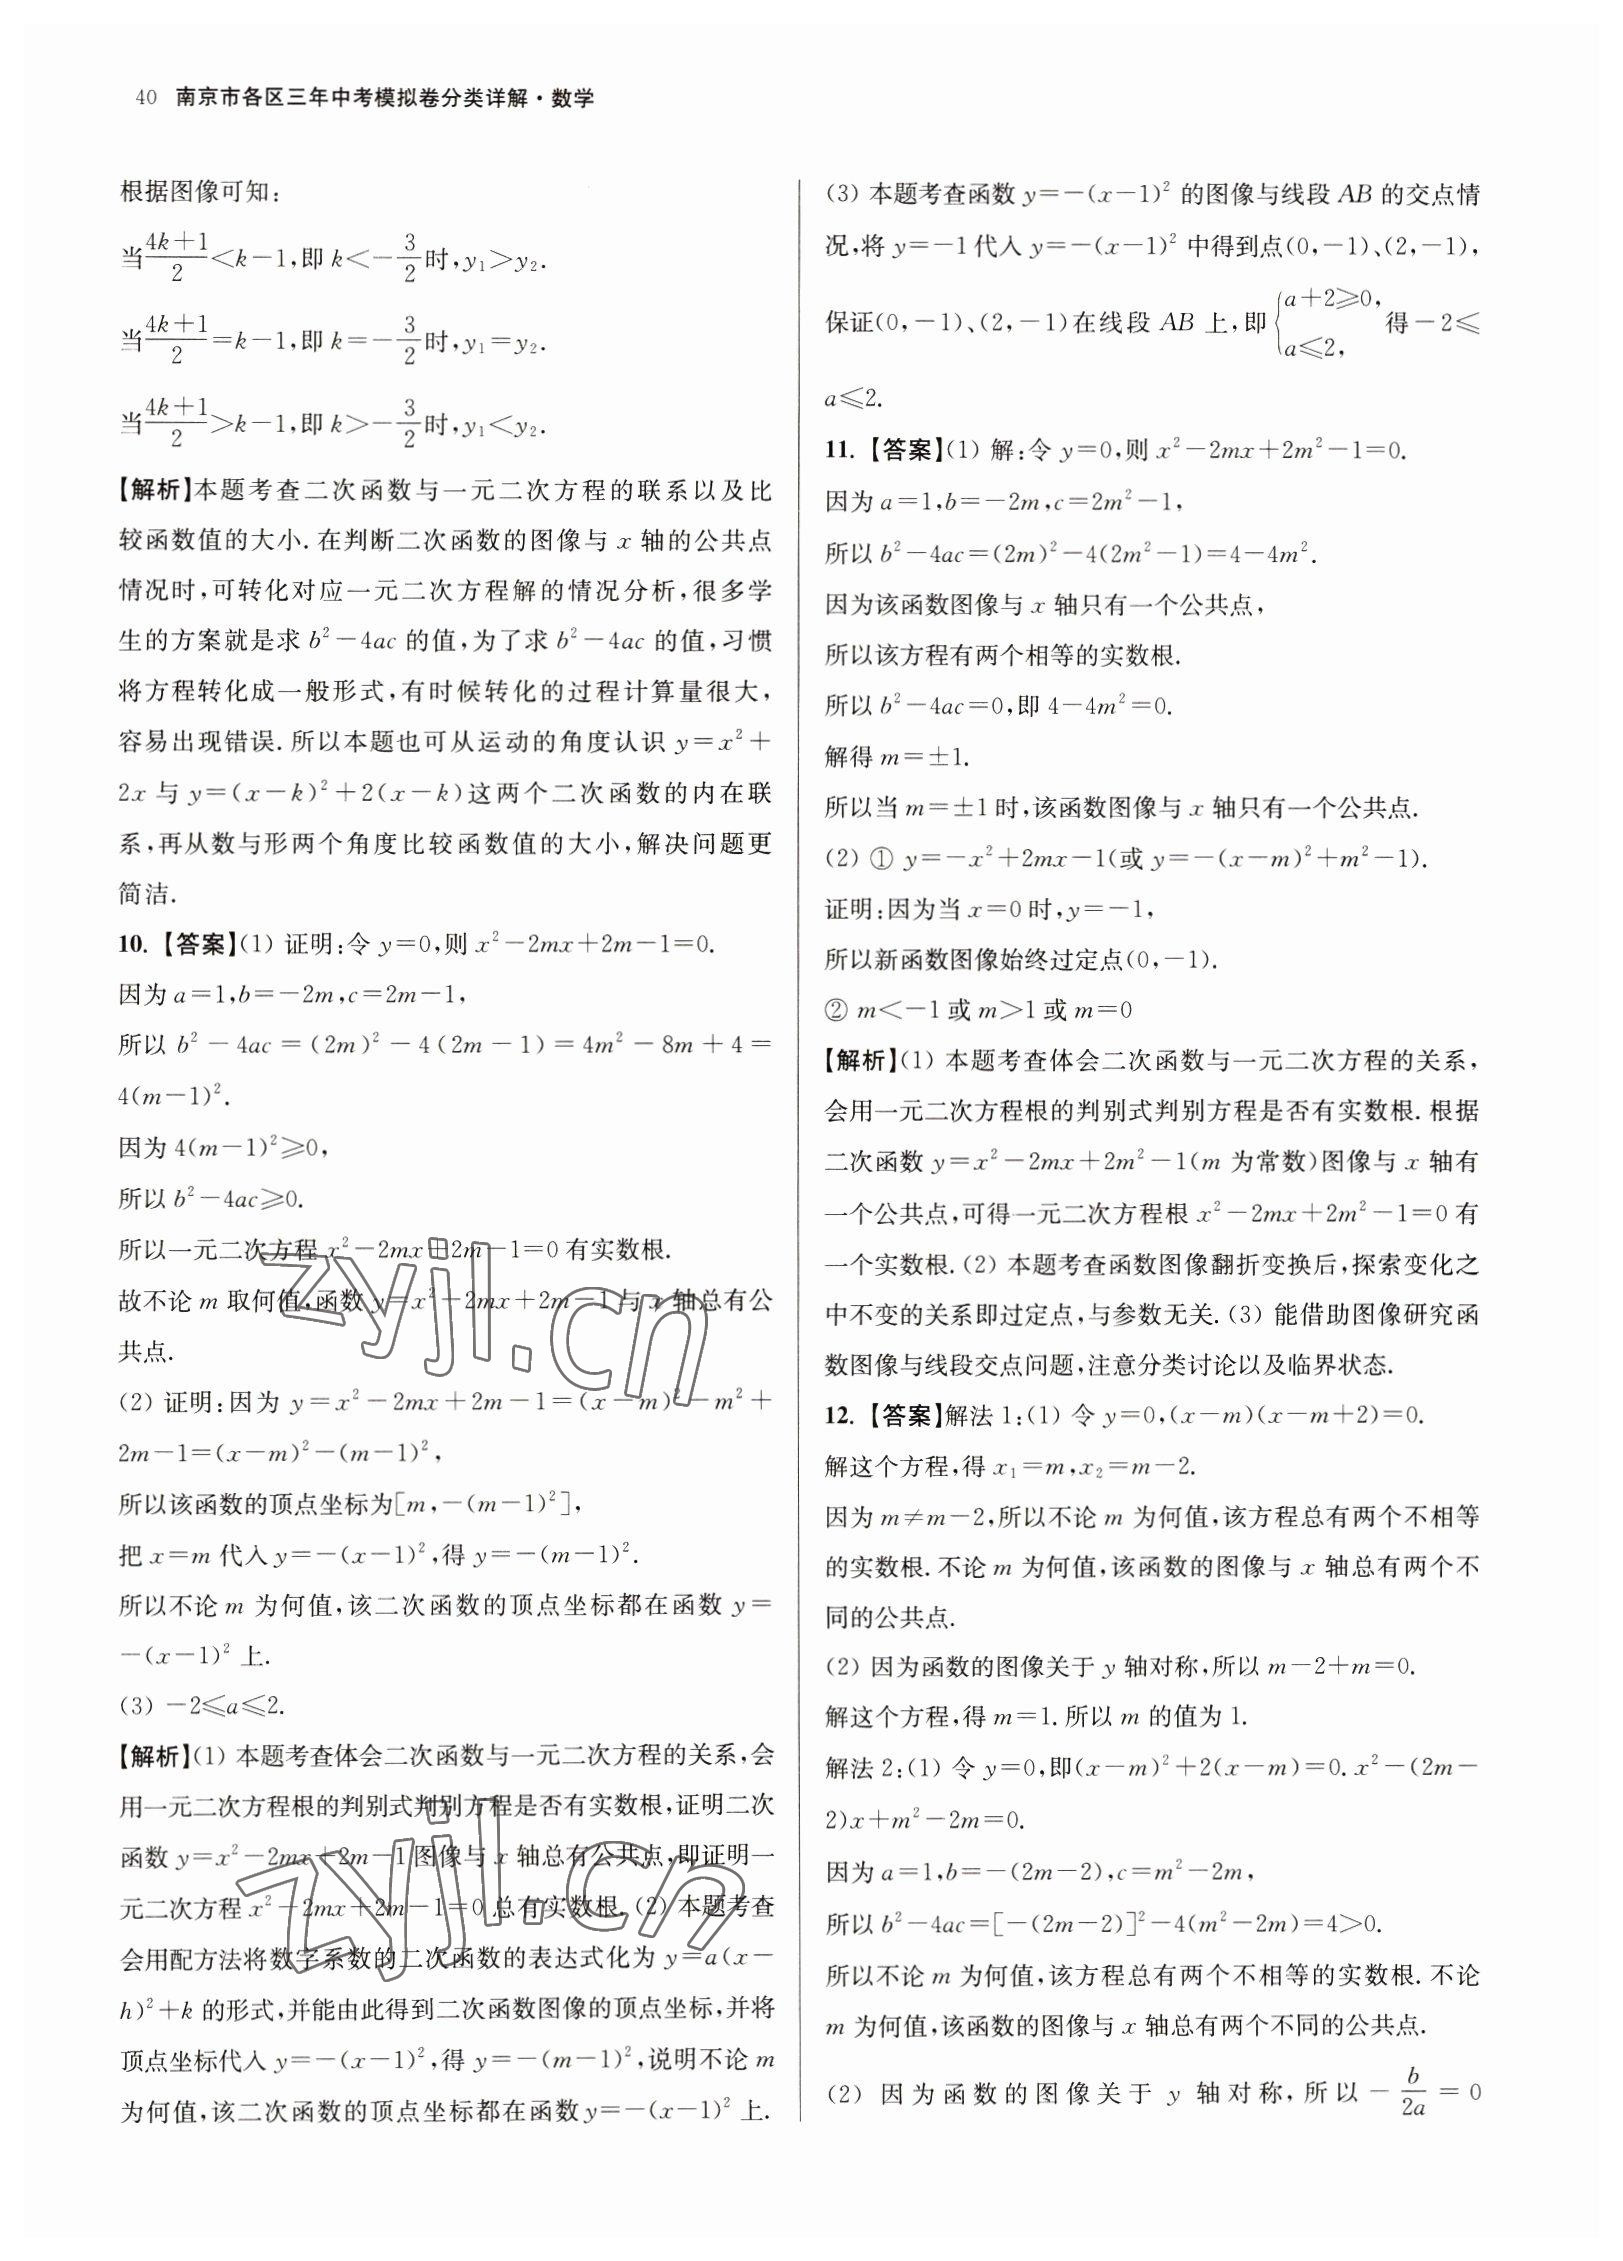 40 南京市各区三年中考模拟卷分类详解·数学
根据图像可知:
当(4k+1)/2<k-1,即 k<-3/2时,y₁>y₂.
当(4k+1)/2=k-1,即 k=-3/2时,y₁=y₂.
当(4k+1)/2>k-1,即 k>-3/2时,y₁<y₂.
【解析】本题考查二次函数与一元二次方程的联系以及比
较函数值的大小.在判断二次函数的图像与 x 轴的公共点
情况时,可转化对应一元二次方程解的情况分析,很多学
生的方案就是求 b²-4ac 的值,为了求 b²-4ac 的值,习惯
将方程转化成一般形式,有时候转化的过程计算量很大,
容易出现错误.所以本题也可从运动的角度认识 y=x²+
2x 与 y=(x-k)²+2(x-k)这两个二次函数的内在联
系,再从数与形两个角度比较函数值的大小,解决问题更
简洁.
10.【答案】(1) 证明:令 y=0,则 x²-2mx+2m-1=0.
因为 a=1,b=-2m,c=2m-1,
所以 b²-4ac=(2m)²-4(2m-1)=4m²-8m+4=
4(m-1)².
因为 4(m-1)²≥0,
所以 b²-4ac≥0.
所以一元二次方程 x²-2mx+2m-1=0 有实数根.
故不论 m 取何值,函数 y=x²-2mx+2m-1 与 x 轴总有公
共点.
(2) 证明:因为 y=x²-2mx+2m-1=(x-m)²-m²+
2m-1=(x-m)²-(m-1)²,
所以该函数的顶点坐标为[m,-(m-1)²],
把 x=m 代入 y=-(x-1)²,得 y=-(m-1)².
所以不论 m 为何值,该二次函数的顶点坐标都在函数 y=
-(x-1)² 上.
(3) -2≤a≤2.
【解析】(1) 本题考查体会二次函数与一元二次方程的关系,会
用一元二次方程根的判别式判别方程是否有实数根,证明二次
函数 y=x²-2mx+2m-1 图像与 x 轴总有公共点,即证明一
元二次方程 x²-2mx+2m-1=0 总有实数根.(2) 本题考查
会用配方法将数字系数的二次函数的表达式化为 y=a(x-
h)²+k 的形式,并能由此得到二次函数图像的顶点坐标,并将
顶点坐标代入 y=-(x-1)²,得 y=-(m-1)²,说明不论 m
为何值,该二次函数的顶点坐标都在函数 y=-(x-1)² 上.
(3) 本题考查函数 y=-(x-1)² 的图像与线段 AB 的交点情
况,将 y=-1代入 y=-(x-1)² 中得到点(0,-1)、(2,-1),
保证(0,-1)、(2,-1)在线段 AB 上,即{a+2≥0, a≤2, 得-2≤
a≤2.
11.【答案】(1) 解:令 y=0,则 x²-2mx+2m²-1=0.
因为 a=1,b=-2m,c=2m²-1,
所以 b²-4ac=(2m)²-4(2m²-1)=4-4m².
因为该函数图像与 x 轴只有一个公共点,
所以该方程有两个相等的实数根.
所以 b²-4ac=0,即 4-4m²=0.
解得 m=±1.
所以当 m=±1时,该函数图像与 x 轴只有一个公共点.
(2) ① y=-x²+2mx-1(或 y=-(x-m)²+m²-1).
证明:因为当 x=0时,y=-1,
所以新函数图像始终过定点(0,-1).
② m<-1或 m>1或 m=0
【解析】(1) 本题考查体会二次函数与一元二次方程的关系,
会用一元二次方程根的判别式判别方程是否有实数根.根据
二次函数 y=x²-2mx+2m²-1(m 为常数)图像与 x 轴有
一个公共点,可得一元二次方程根 x²-2mx+2m²-1=0 有
一个实数根.(2) 本题考查函数图像翻折变换后,探索变化之
中不变的关系即过定点,与参数无关.(3) 能借助图像研究函
数图像与线段交点问题,注意分类讨论以及临界状态.
12.【答案】解法 1:(1) 令 y=0,(x-m)(x-m+2)=0.
解这个方程,得 x₁=m,x₂=m-2.
因为 m≠m-2,所以不论 m 为何值,该方程总有两个不相等
的实数根.不论 m 为何值,该函数的图像与 x 轴总有两个不
同的公共点.
(2) 因为函数的图像关于 y 轴对称,所以 m-2+m=0.
解这个方程,得 m=1.所以 m 的值为 1.
解法 2:(1) 令 y=0,即(x-m)²+2(x-m)=0. x²-(2m-
2)x+m²-2m=0.
因为 a=1,b=-(2m-2),c=m²-2m,
所以 b²-4ac=[-(2m-2)]²-4(m²-2m)=4>0.
所以不论 m 为何值,该方程总有两个不相等的实数根.不论
m 为何值,该函数的图像与 x 轴总有两个不同的公共点.
(2) 因为函数的图像关于 y 轴对称,所以 -b/2a=0
zyjl.cn
zyjl.cn